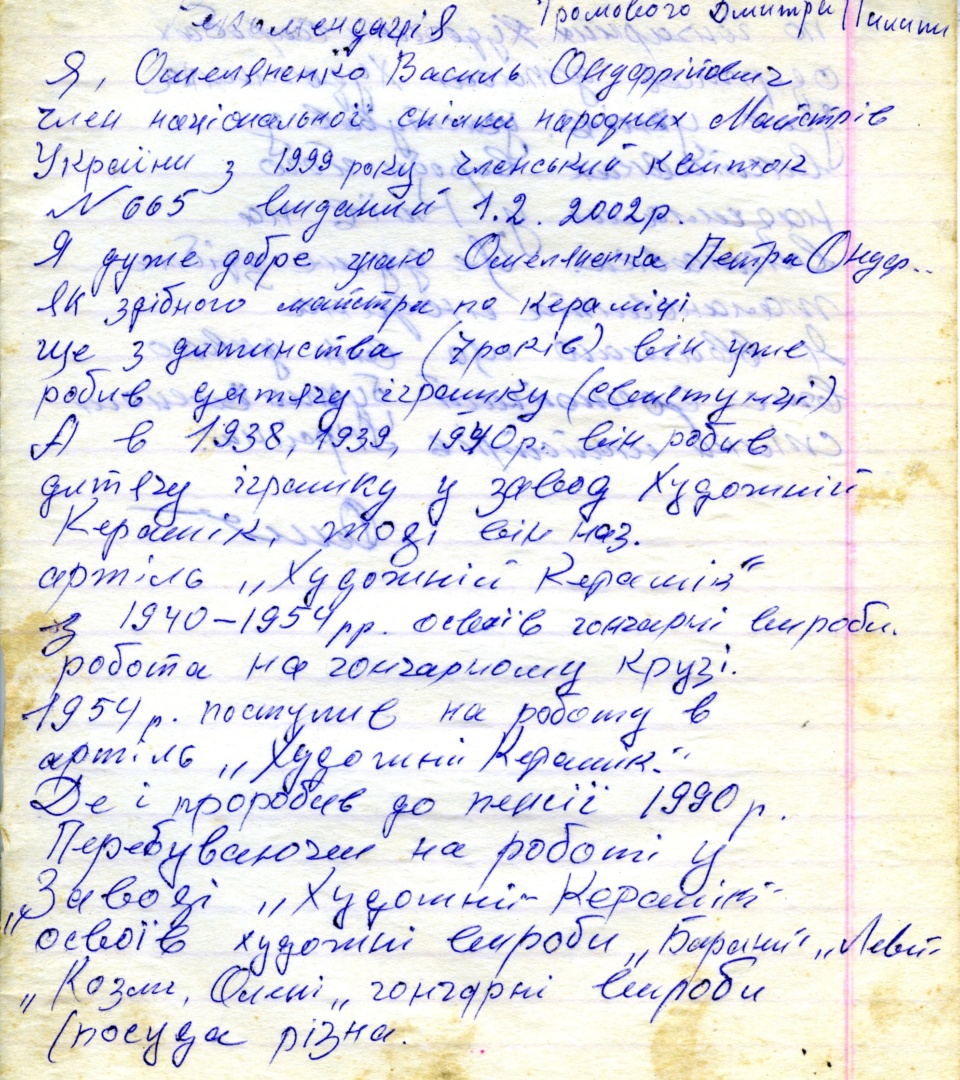 Громового Дмитра
Рекомендація
Я, Омеляненко Василь Ондфрійович
член національної спілки народних Майстрів
України з 1999 року членський квиток
№ 665 виданий 1.2. 2002р.
Я дуже добре знаю Омеляненка Петра Ондф..
як здібного майстра по кераміці
ще з дитинства (7років) він уже
робив дитячу іграшку (свистунці)
А в 1938, 1939, 1940р. він робив
дитячу іграшку у завод Художній
Керамік, тоді він наз.
артіль „Художній Керамік"
з 1940-1954рр. освоїв гончарні вироби.
робота на гончарному крузі.
1954р. поступив на роботу в
артіль „Художній Керамік."
Де і проробив до пенсії 1990р.
Перебуваючи на роботі у
„Заводі „Художній Керамік"
освоїв художні вироби „Барани" „Леви"
„Козли, Олені„ гончарні вироби
(посуда різна.